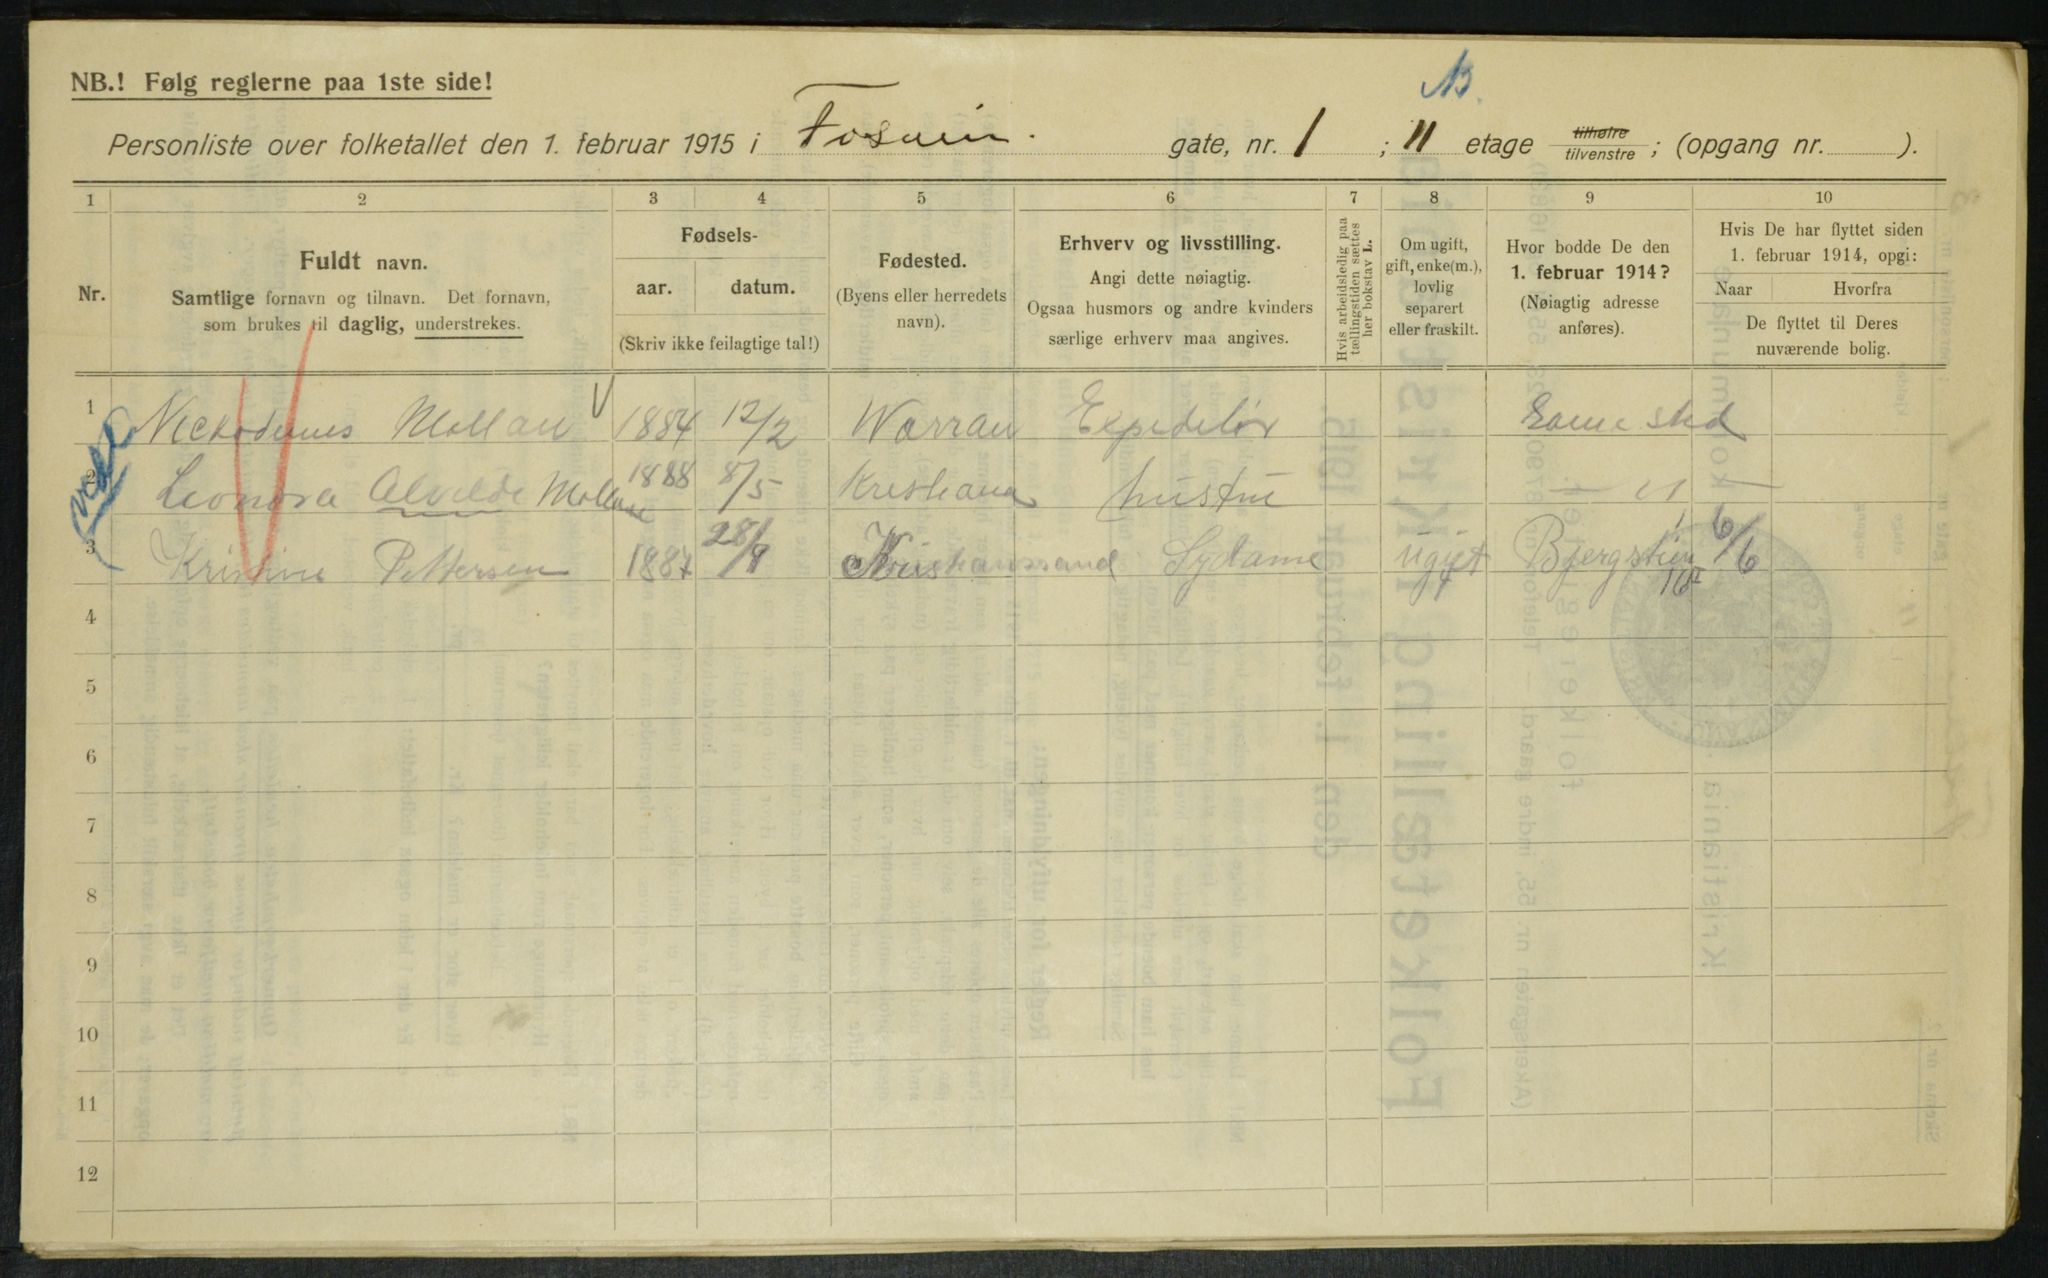 NB.! Følg reglerne paa 1ste side!
Personliste over folketallet den 1. februar 1915 i gate, nr. 1 ; 11 etage tilhøire tilvenstre ; (opgang nr. ).
1 2 3 4 5 6 7 8 9 10
Nr.
Fuldt navn.
Samtlige fornavn og tilnavn. Det fornavn,
som brukes til daglig, understrekes.
Fødsels-
aar. datum.
(Skriv ikke feilagtige tal!)
Fødested.
(Byens eller herredets
navn).
Erhverv og livsstilling.
Angi dette nøiagtig.
Ogsaa husmors og andre kvinders
særlige erhverv maa angives.
Hvis arbeidsledig paa
tællingstiden sættes
her bokstav L.
Om ugift,
gift, enke(m.),
lovlig
separert
eller fraskilt.
Hvor bodde De den
1. februar 1914?
(Nøiagtig adresse
anføres).
Hvis De har flyttet siden
1. februar 1914, opgi:
Naar Hvorfra
De flyttet til Deres
nuværende bolig.
1 Mollan 1884 12/2 Expeditør
2 Leonora Alvilde Mollan 1888 8/5 Kristiania hustru
3 Kristine Pettersen 1887 28/9 Kristianssand Sydame ugift 6/6
4
5
6
7
8
9
10
11
12